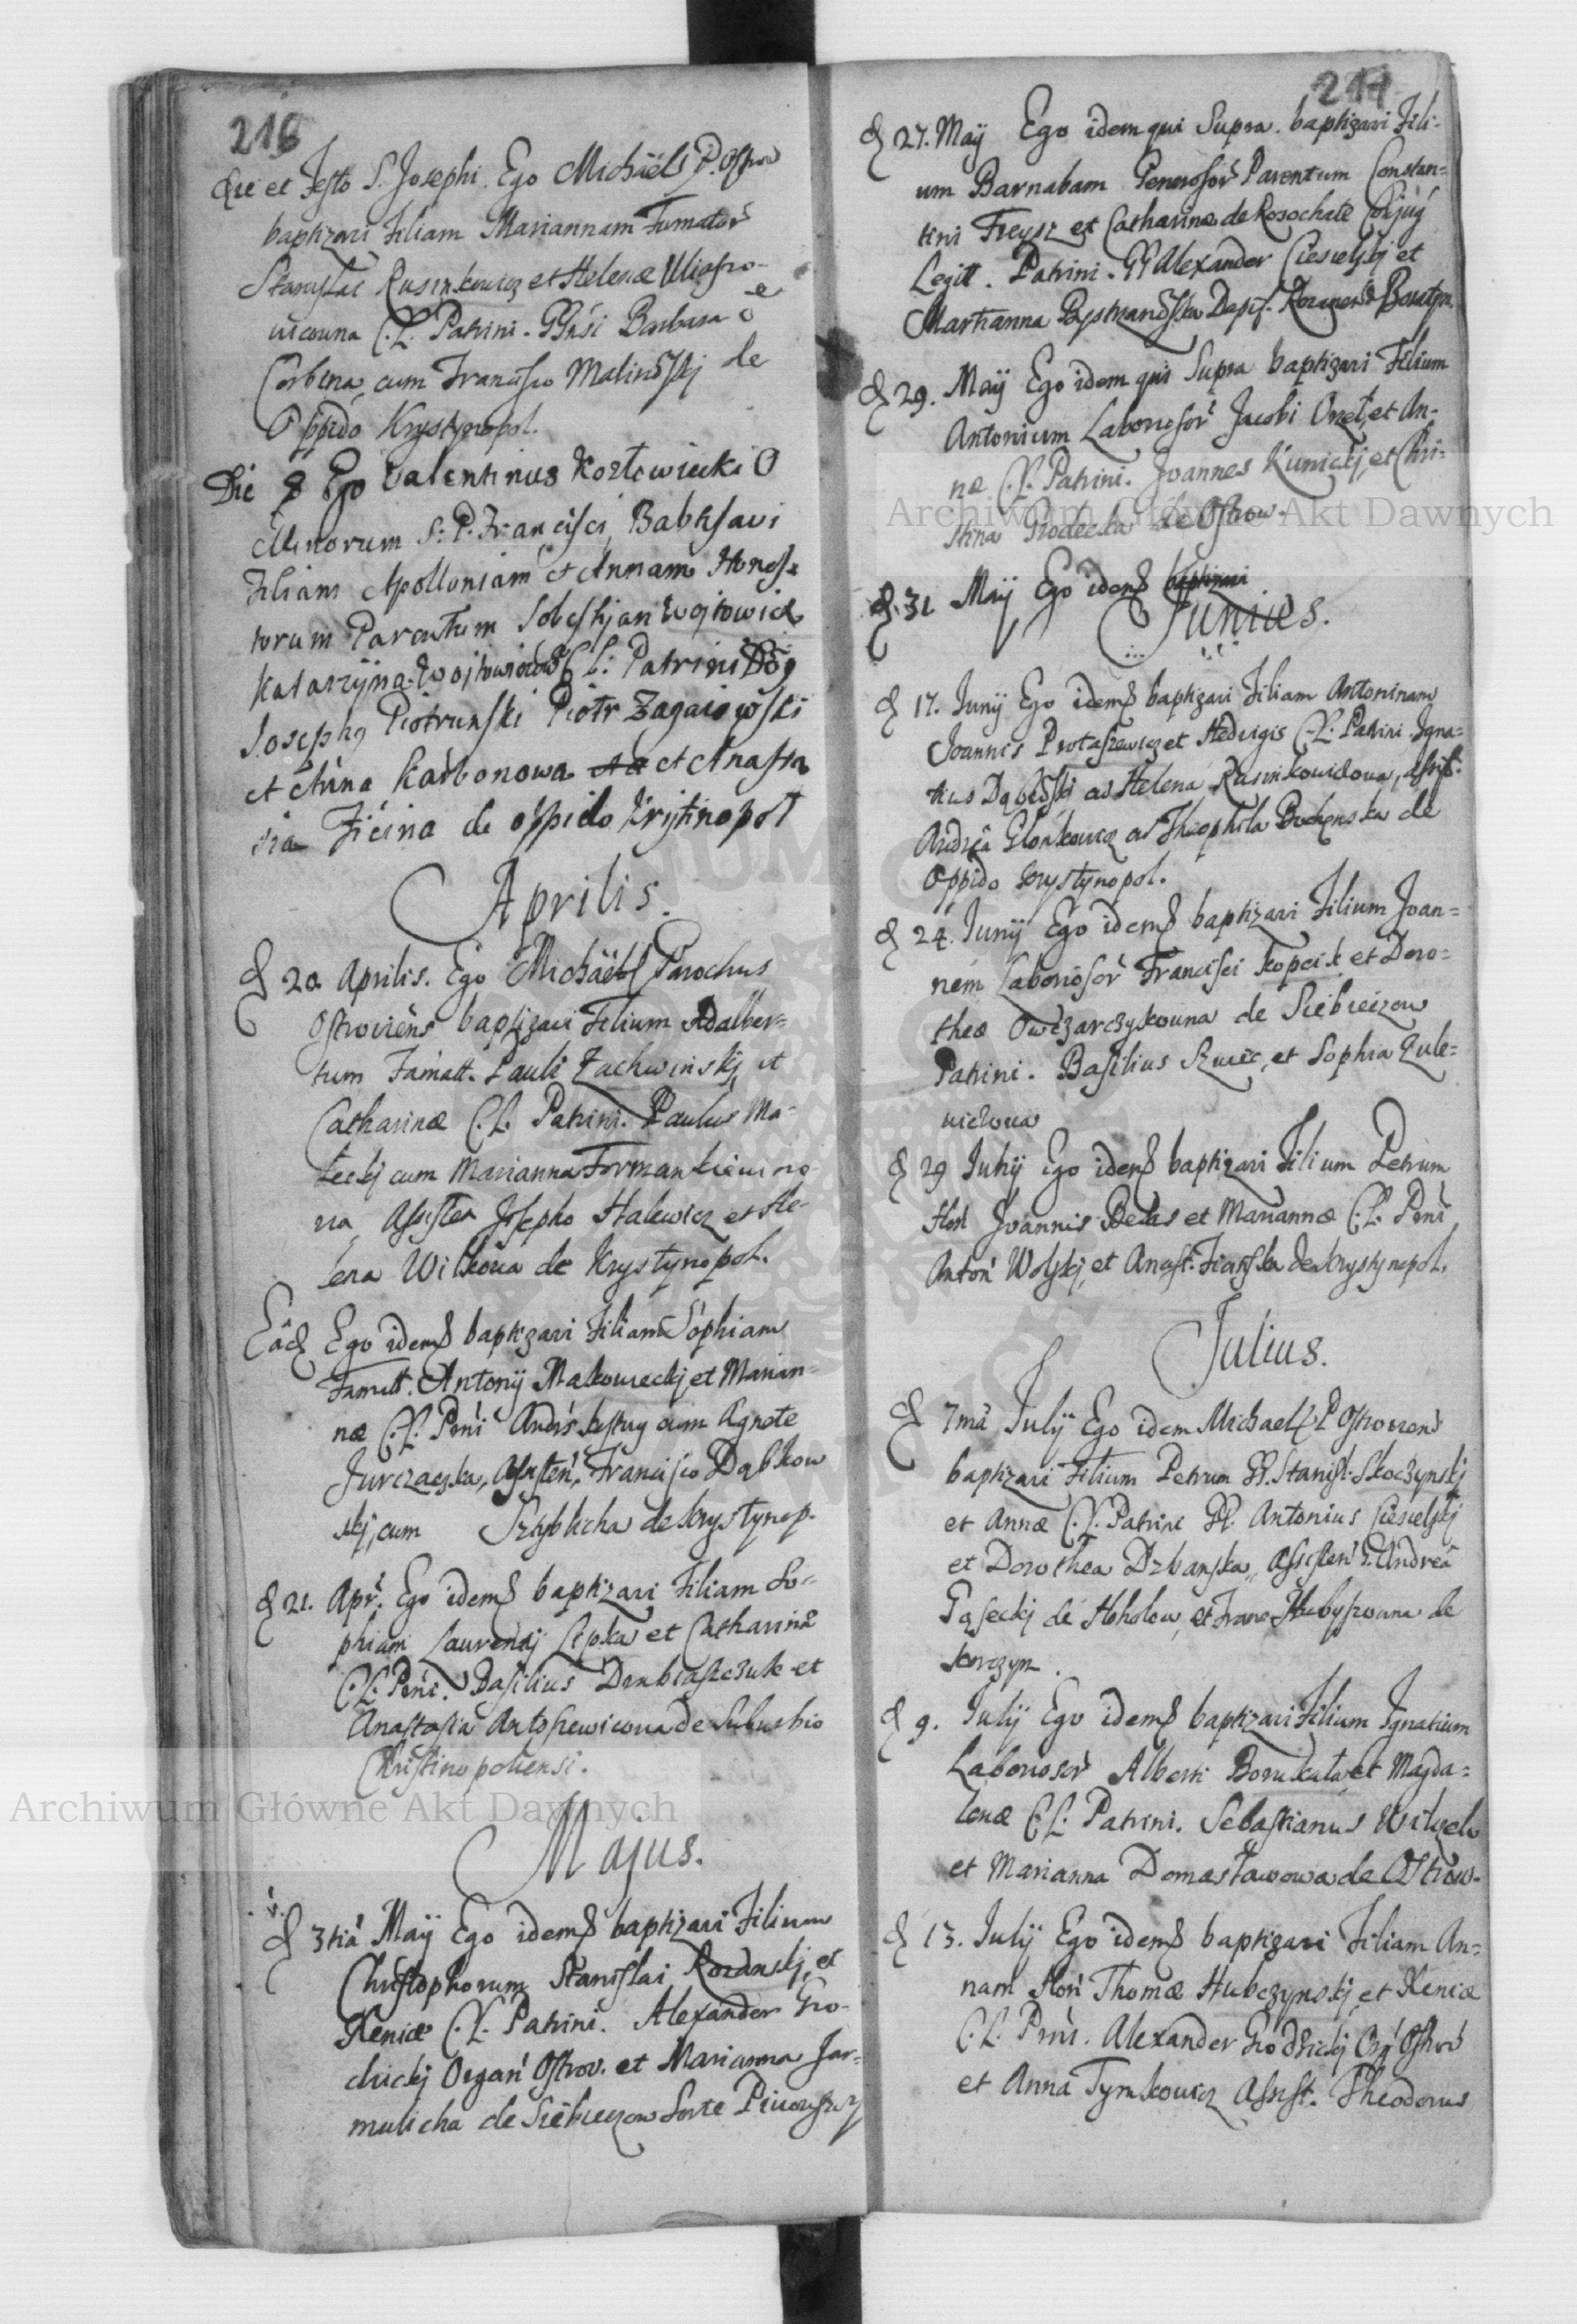 216
Die et Festo S. Josephi. Ego Michäel P. Ostrow
baptizavi Filiam Mariannam Famator
Stanislai Rusinkowicz et Helenæ
C. L. Patrini. Barbara
Corbina cum Francisco Malinowskj de
Oppido Krystynopol.
Die 8 Ego Valentinus Kozłowiecki O
Minorum S. P. Francisci, Babtisavi
Filiam Apolloniam et Annam Hones
torum Parentum Sobestjan Wojtowicz
Katarzyna Wojtowiczowa C. L. Patrini
Josephg Piotrunski Piotr Zagaiowski
et Anna Karbonowa et Anasta
sia Ficina de oppido Kristinopol
Aprilis.
d 20 Aprilis. Ego Michäel Parochus
Ostroviens baptizavi Filium Adalber=
tum Famatt. Pauli Zachwinskj et
Catharinæ C. L. Patrini. Paulus Ma=
leckj cum Marianna
na Assisten Josepho Halewicz et He=
lena Wilkowa de Krystynopol.
Eād Ego idem baptizavi Filiam Sophiam
Famatt. Antonij Makowieckj et Marian=
næ C. L. Pnni cum Agnete
Jurczacska, Assisten, Francisco Dąbkow
skj, cum de Krystynop.
d 21. Apr. Ego idem baptizavi Filiam So=
phiam Laurentij Lipka et Catharinæ
C. L. Pnni. Basilius et
Anastasia Antosiewicowa de Suburbio
Christinopoliensi.
Majus.
d 3tiâ Maÿ Ego idem baptizavi Filium
Christophorum Stanislai Rozanskj et
Xeniæ C. L. Patrini. Alexander Gro=
dzickj Organ Ostrov. et Marianna Jar=
mulicha de Siebieczow
214
d 27. Maÿ Ego idem qui Supra. baptizavi Fili=
um Barnabam Generosor Parentum Constan=
tini Treysz et Catharinæ de Rosochate Conjug
Legitt. Patrini. Alexander Ciesielskj et
Marianna
d 29. Maÿ Ego idem qui Supra baptizavi Filium
Antonium Laborosor Jacobi et An=
næ C. L. Patrini. Joannes Kunickj, et Chri=
stina Grodecka de Ostrow.
d. 31 Maÿ Ego idem baptizavi
Junius.
d 17. Junÿ Ego idem baptizavi Filiam Antoninam
Joannis Protaszewicz et Hedvigis C. L. Patrini Igna=
tius Dąbrowskj ac Helena Rusinkowiczowa, assist.
Andreâ ac Theophila de
Oppido Krystynopol.
d 24. Junÿ Ego idem baptizavi Filium Joan=
nem Laboriosor Francisci Kopcik et Doro=
theæ Owczarczykowna de Siebieczow
Patrini. Basilius et Sophia Zule=
wiczowa
d 29 Junÿ Ego idem baptizavi Filium Petrum
Hon Joannis et Mariannæ C. L. Pnni
Anton Wolskj, et Anast. de Krystynopol.
Julius.
d 7mâ Julÿ Ego idem Michael P Ostroviens
baptizavi Filium Petrum Stanisl. Skoczynskj
et Annæ C. L. Patrini Antonius Ciesielskj
et Dorothea Dzbanska, Assisten. Andreâ
Gąseckj de Hoholow, et de
Korczyn.
d 9. Julÿ Ego idem baptizavi Filium Ignatium
Laboriosor Alberti et Magda=
lenæ C. L. Patrini. Sebastianus
et Marianna Domasławowa de Ostrow.
d 13. Julÿ Ego idem baptizavi Filiam An=
nam Hon Thomæ Hubczynskj et Xeniæ
C. L. Pnni. Alexander Grodzickj Org Ostrow
et Anna Tymkowicz Assist. Theodorus
Archiwum Główne Akt Dawnych
Archiwum Główne Akt Dawnych